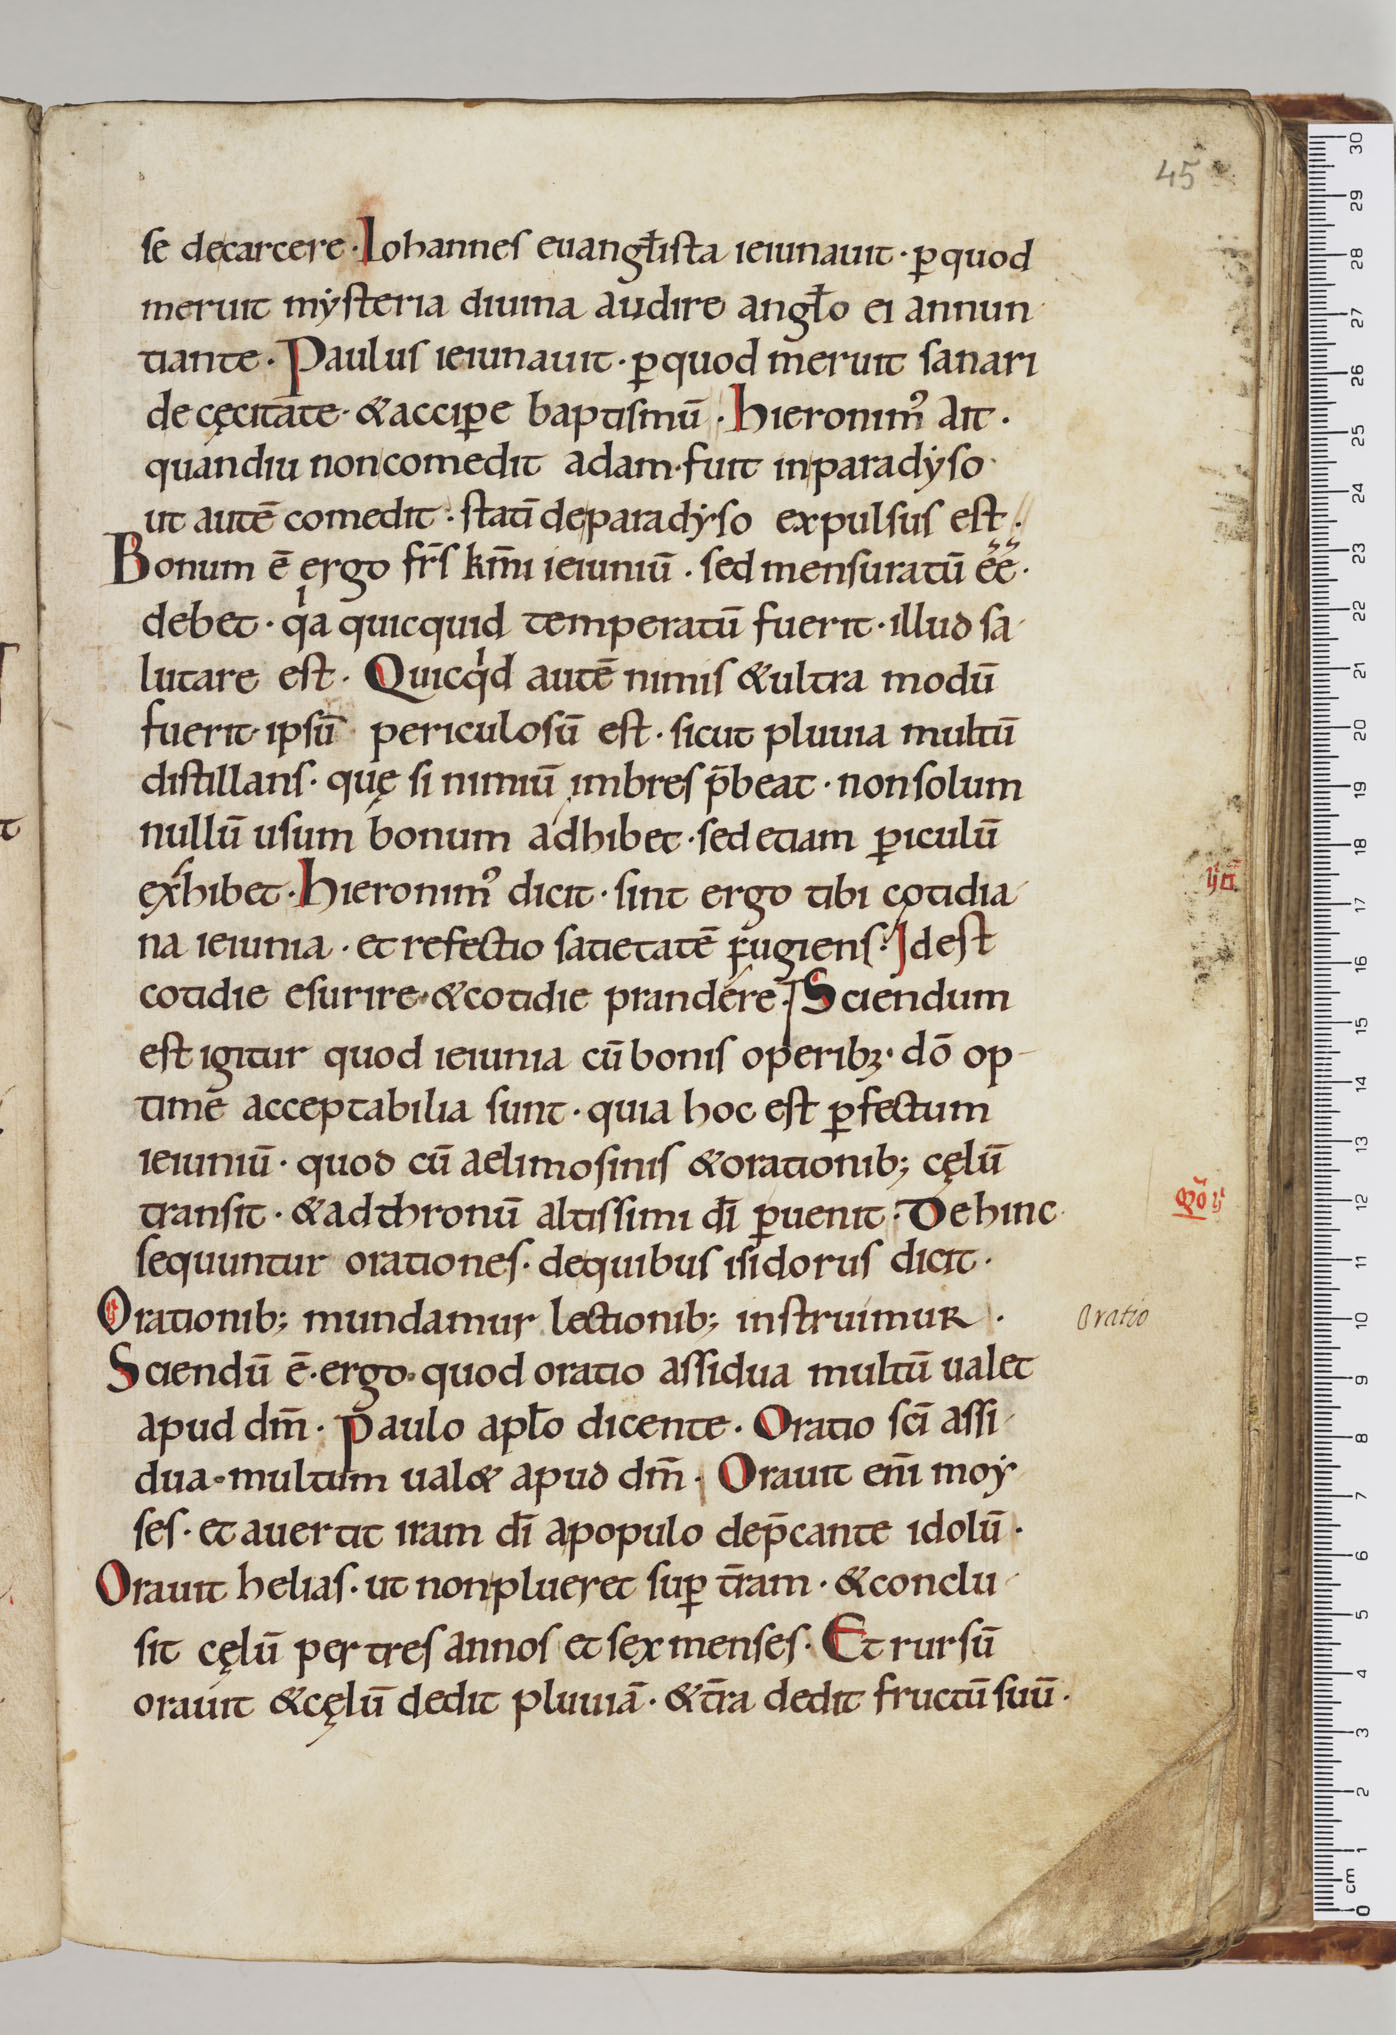 45
se decarcere · Iohannes euangłista ieiunauit · ꝑquod
meruit mẏsteria diuina audire angło ei annun
tiante · Paulus ieiunauit · ꝑquod meruit sanari
de cęcitate · &acciꝑe baptismū · hieronimꝰ ait ·
quandiu noncomedit adam · fuit inparadẏso
ut autē comedit · statī deparadẏso expulsus est ·
Bonum ē ergo fr̄s km̄i ieiuniū · sed mensuratū ee ·
debet · qͥa quicquid temperatū fuerit · illud sa
lutare est · Quicqͥd autē nimis &ultra modū
fuerit · ipsū periculosū est · sicut pluuia multū
distillans · quę si nimiū imbres p̄beat · nonsolum
nullū usum bonum adhibet · sed etiam ꝑiculū
exhibet · hieronimꝰ dicit · sint ergo tibi cotidia
na ieiunia · et refectio satietatē fugiens · Idest
cotidie esurire · &cotidie prandere · Sciendum
est igitur quod ieiunia cū bonis operibꝫ · dō op
time acceptabilia sunt · quia hoc est ꝑfectum
ieiuniū · quod cū aelimosinis &orationib; cęlū
transit · &adthronū altissimi dī ꝑuenit · Dehinc
sequuntur orationes · dequibus isidorus dicit ·
Orationib; mundamur lectionib; instruimuR ·
Oratio
Sciendū ē · ergo · quod oratio assidua multū ualet
apud dm̄ · Paulo apło dicente · Oratio scī assi
dua · multum ual& apud dm̄ · Orauit enī moẏ
ses · et auertit iram dī apopulo dep̄cante idolū ·
Orauit helias · ut nonplueret suꝑ t̄ram · &conclu
sit cęlū per tres annos et sex menses · Et rursū
orauit &cęlū dedit pluuiā · &t̄ra dedit fructū suū ·
30
29
28
27
26
25
24
23
22
21
20
19
18
17
16
15
14
13
12
11
10
9
8
7
6
5
4
3
2
1
cm
0